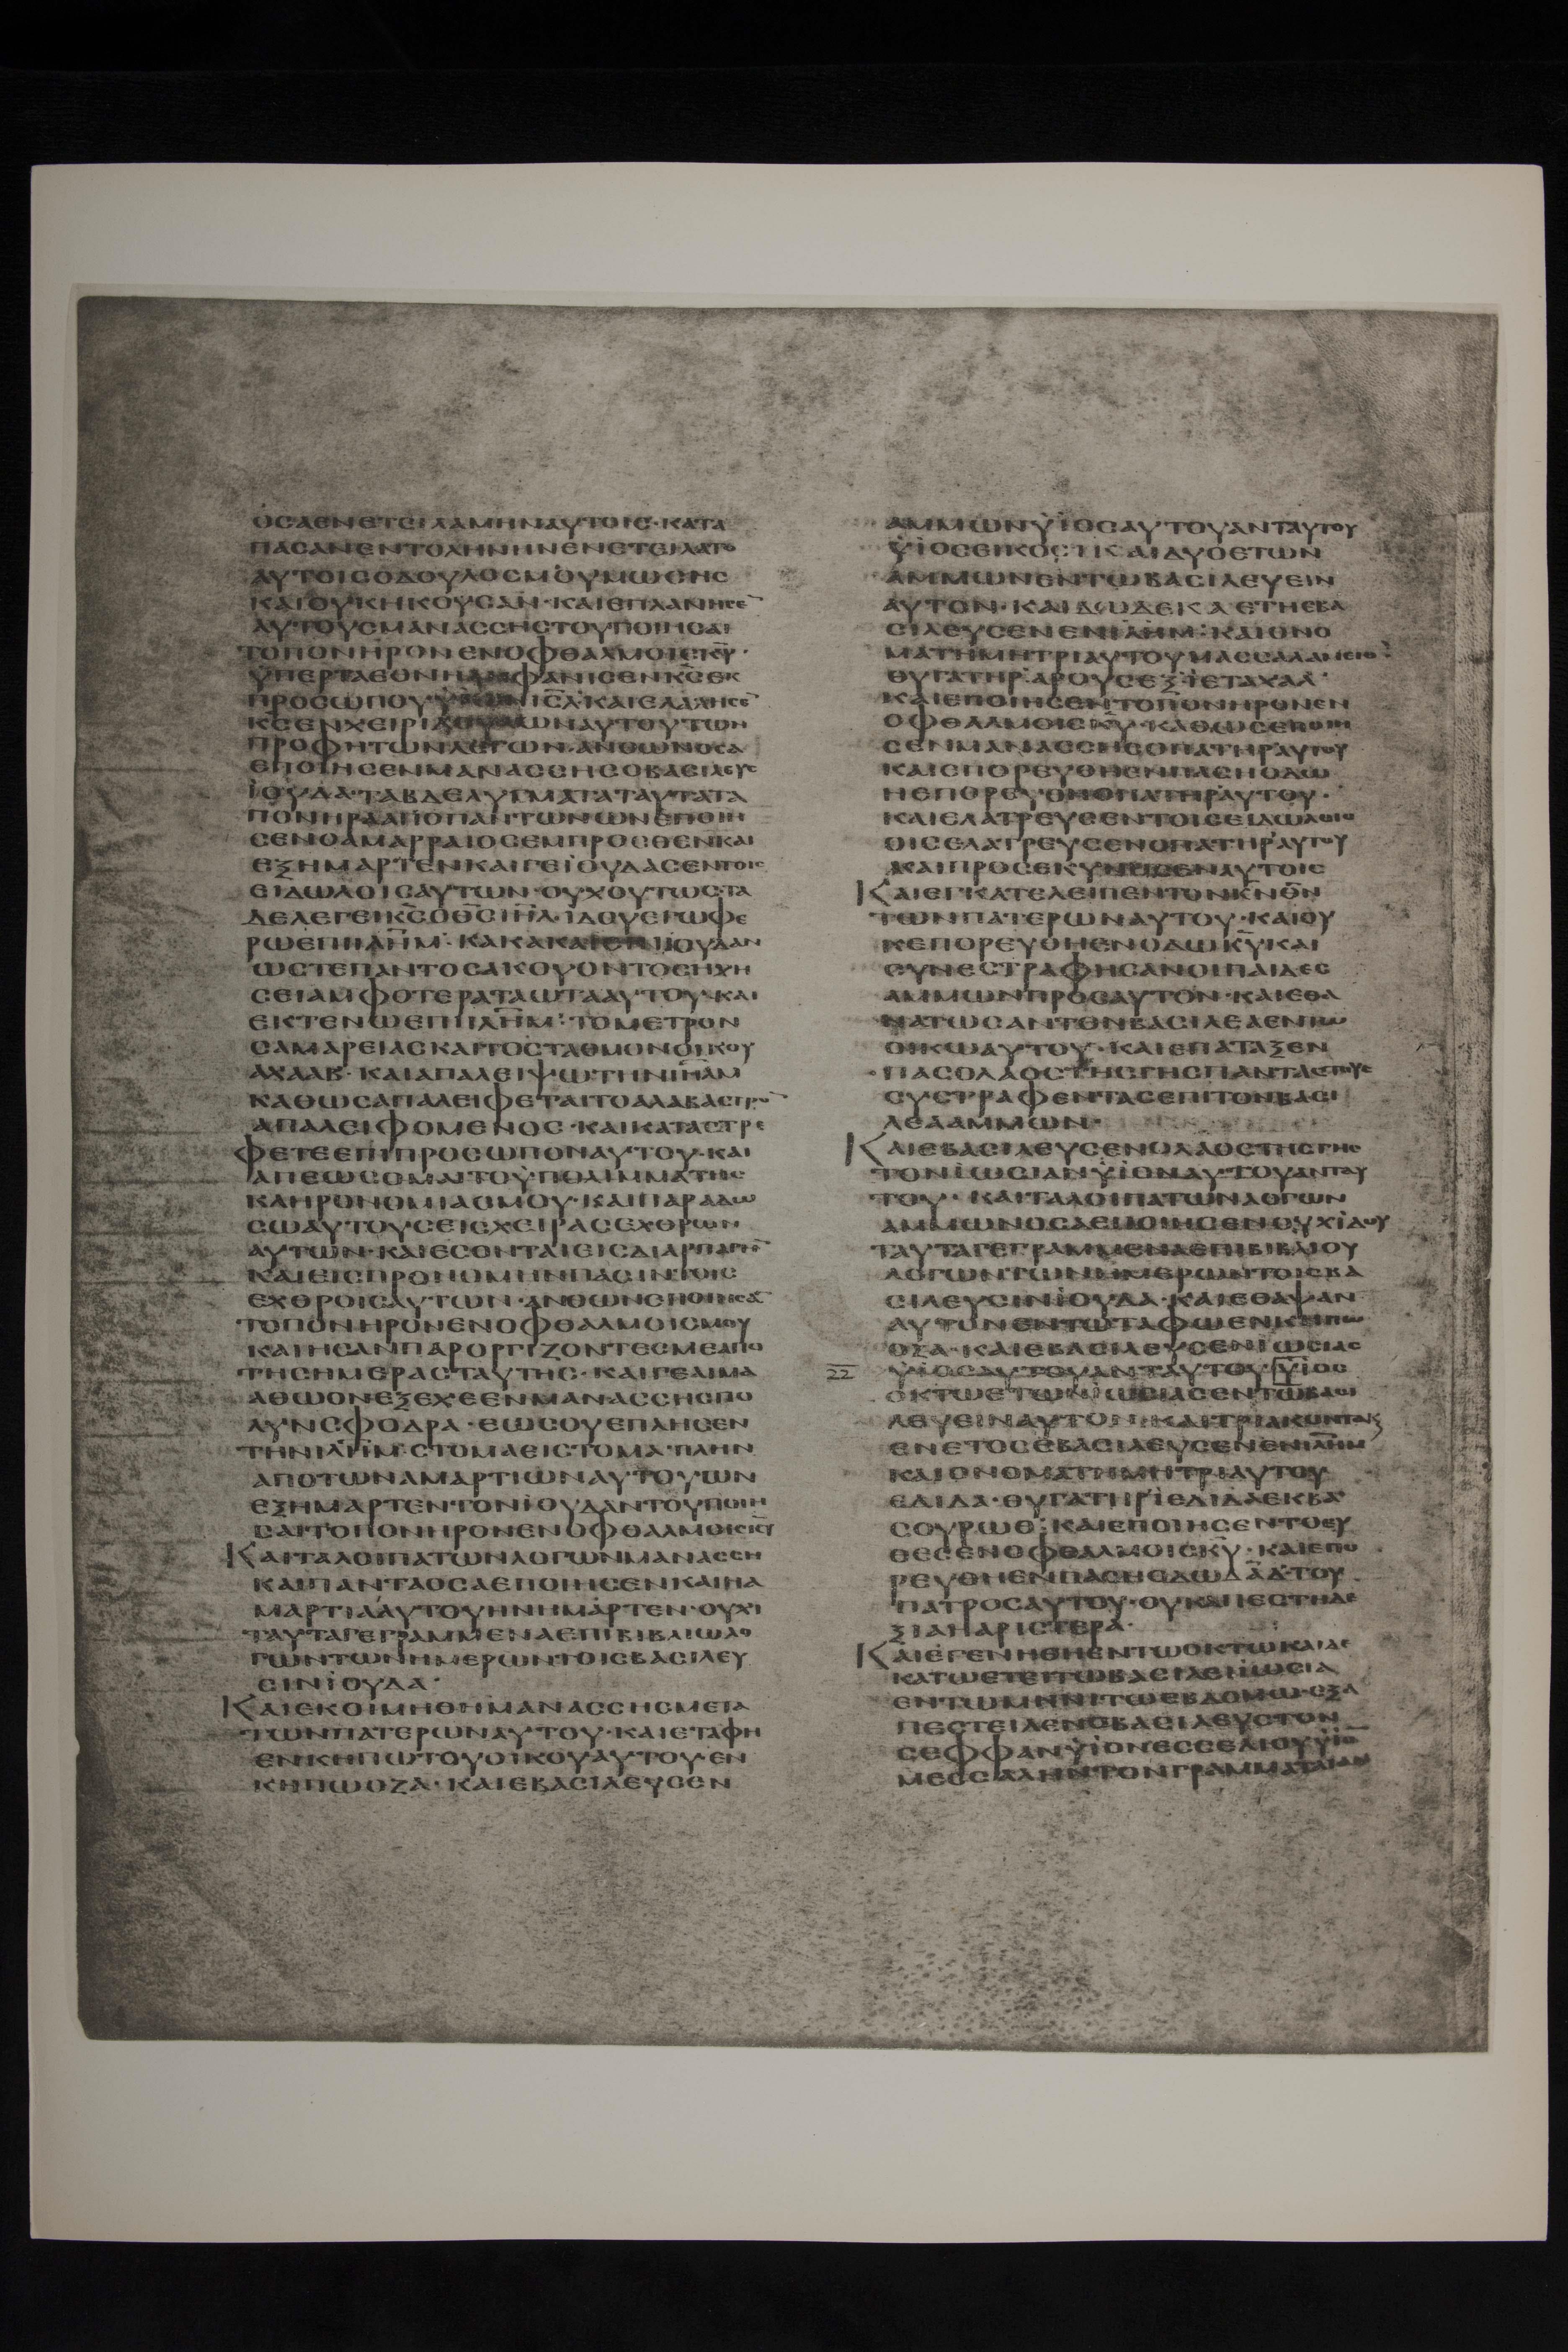 ΟϹΑΕΝΕΤΕΙΛΑΜΗΝΑΥΤΟΙϹ·ΚΑΤΑ
ΠΑϹΑΝΕΝΤΟΛΗΝΗΝΕΝΕΤΕΙΛΑΤΟ
ΑΥΤΟΙϹΟΔΟΥΛΟϹΜΟΥΜΩϹΗϹ
ΚΑΙΟΥΚΗΚΟΥϹΑΝ·ΚΑΙΕΠΛΑΝΗϹΕ̅
ΑΥΤΟΥϹΜΑΝΑϹϹΗϹΤΟΥΠΟΙΗϹΑΙ
ΤΟΠΟΝΗΡΟΝΕΝΟΦΘΑΛΜΟΙϹΚ̅Υ̅·
ΫΠΕΡΤΑΕΘΝΗ ΗΦΑΝΙϹΕΝΚ̅Ϲ̅ΕΚ
ΠΡΟϹΩΠΟΥ Ι̅Ϲ̅Λ̅·ΚΑΙΕΛΑΛΗϹΕ̅
Κ̅Ϲ̅ΕΝΧΕΙΡΙΔΟΥΛΩΝΑΥΤΟΥΤΩΝ
ΠΡΟΦΗΤΩΝΛΕΓΩΝ·ΑΝΘΩΝΟϹΑ
ΕΠΟΙΗϹΕΝΜΑΝΑϹϹΗϹΟΒΑϹΙΛΕΥϹ
ΪΟΥΔΑ·ΤΑΒΔΕΛΥΓΜΑΤΑΤΑΥΤΑΤΑ
ΠΟΝΗΡΑΑΠΟΠΑΝΤΩΝΩΝΕΠΟΙΗ
ϹΕΝΟΑΜΑΡΡΑΙΟϹΕΜΠΡΟϹΘΕΝΚΑΙ
ΕΞΗΜΑΡΤΕΝΚΑΙΓΕΪΟΥΔΑϹΕΝΤΟΙϹ
ΕΙΔΩΛΟΙϹΑΥΤΩΝ·ΟΥΧΟΥΤΩϹΤΑ
ΔΕΛΕΓΕΙΚ̅Ϲ̅ΟΘ̅Ϲ̅Ι̅Η̅Λ̅·ΙΔΟΥΕΓΩΦΕ
ΡΩΕΠΙΙΛ̅Η̅Μ̅·ΚΑΚΑΚΑΙΕΠΙΙΟΥΔΑΝ
ΩϹΤΕΠΑΝΤΟϹΑΚΟΥΟΝΤΟϹΗΧΗ
ϹΕΙΑΜΦΟΤΕΡΑΤΑΩΤΑΑΥΤΟΥ·ΚΑΙ
ΕΚΤΕΝΩΕΠΙΙΛ̅Η̅Μ̅·ΤΟΜΕΤΡΟΝ
ϹΑΜΑΡΕΙΑϹΚΑΙΤΟϹΤΑΘΜΟΝΟΙΚΟΥ
ΑΧΑΑΒ·ΚΑΙΑΠΑΛΕΙΨΩΤΗΝΙ̅Η̅Λ̅Μ̅
ΚΑΘΩϹΑΠΑΛΕΙΦΕΤΑΙΤΟΑΛΑΒΑϹΤΡΟ̅
ΑΠΑΛΕΙΦΟΜΕΝΟϹ·ΚΑΙΚΑΤΑϹΤΡΕ
ΦΕΤΕΕΠΙΠΡΟϹΩΠΟΝΑΥΤΟΥ·ΚΑΙ
ΑΠΕΩϹΟΜΑΙΤΟΥΠΟΛΙΜΜΑΤΗϹ
ΚΛΗΡΟΝΟΜΙΑϹΜΟΥ·ΚΑΙΠΑΡΑΔΩ
ϹΩΑΥΤΟΥϹΕΙϹΧΕΙΡΑϹΕΧΘΡΩΝ
ΑΥΤΩΝ·ΚΑΙΕϹΟΝΤΑΙΕΙϹΔΙΑΡΠΑΓΗ̅
ΚΑΙΕΙϹΠΡΟΝΟΜΗΝΠΑϹΙΝΤΟΙϹ
ΕΧΘΡΟΙϹΑΥΤΩΝ·ΑΝΘΩΝΕΠΟΙΗϹΑ̅
ΤΟΠΟΝΗΡΟΝΕΝΟΦΘΑΛΜΟΙϹΜΟΥ
ΚΑΙΗϹΑΝΠΑΡΟΡΓΙΖΟΝΤΕϹΜΕΑΠΟ
ΤΗϹΗΜΕΡΑϹΤΑΥΤΗϹ·ΚΑΙΓΕΑΙΜΑ
ΑΘΩΟΝΕΞΕΧΕΕΝΜΑΝΑϹϹΗϹΠΟ
ΛΥΝϹΦΟΔΡΑ·ΕΩϹΟΥΕΠΛΗϹΕΝ
ΤΗΝΙΛ̅Η̅Μ̅·ϹΤΟΜΑΕΙϹΤΟΜΑ·ΠΛΗΝ
ΑΠΟΤΩΝΑΜΑΡΤΙΩΝΑΥΤΟΥΩΝ
ΕΞΗΜΑΡΤΕΝΤΟΝΪΟΥΔΑΝΤΟΥΠΟΙΗ
ϹΑΙΤΟΠΟΝΗΡΟΝΕΝΟΦΘΑΛΜΟΙϹΚ̅Υ̅
ΚΑΙΤΑΛΟΙΠΑΤΩΝΛΟΓΩΝΜΑΝΑϹϹΗ
ΚΑΙΠΑΝΤΑΟϹΑΕΠΟΙΗϹΕΝΚΑΙΗΑ
ΜΑΡΤΙΑΑΥΤΟΥΗΝΗΜΑΡΤΕΝ·ΟΥΧΙ
ΤΑΥΤΑΓΕΓΡΑΜΜΕΝΑΕΠΙΒΙΒΛΙΩΛΟ
ΓΩΝΤΩΝΗΜΕΡΩΝΤΟΙϹΒΑϹΙΛΕΥ
ϹΙΝΪΟΥΔΑ·
ΚΑΙΕΚΟΙΜΗΘΗΜΑΝΑϹϹΗϹΜΕΤΑ
ΤΩΝΠΑΤΕΡΩΝΑΥΤΟΥ·ΚΑΙΕΤΑΦΗ
ΕΝΚΗΠΩΤΟΥΟΙΚΟΥΑΥΤΟΥ·ΕΝ
ΚΗΠΩΟΖΑ·ΚΑΙΕΒΑϹΙΛΕΥϹΕΝ
ΑΜΜΩΝΫΙΟϹΑΥΤΟΥΑΝΤΑΥΤΟΥ
ΫΙΟϹΕΙΚΟϹΙΚΑΙΔΥΟΕΤΩΝ
ΑΜΜΩΝΕΝΤΩΒΑϹΙΛΕΥΕΙΝ
ΑΥΤΟΝ·ΚΑΙΔΩΔΕΚΑΕΤΗΕΒΑ
ϹΙΛΕΥϹΕΝΕΝΙΛ̅Η̅Μ̅·ΚΑΙΟΝΟ
ΜΑΤΗΜΗΤΡΙΑΥΤΟΥ
ΘΥΓΑΤΗΡΑΡΟΥϹΕΞΙΕΤΑΧΑΛ·
ΚΑΙΕΠΟΙΗϹΕΝΤΟΠΟΝΗΡΟΝΕΝ
ΟΦΘΑΛΜΟΙϹΚ̅Υ̅·ΚΑΘΩϹΕΠΟΙΗ
ϹΕΝΜΑΝΑϹϹΗϹΟΠΑΤΗΡΑΥΤΟΥ
ΚΑΙΕΠΟΡΕΥΘΗΕΝΠΑϹΗΟΔΩ
ΗΕΠΟΡΕΥΘΗΟΠΑΤΗΡΑΥΤΟΥ·
ΚΑΙΕΛΑΤΡΕΥϹΕΝΤΟΙϹΕΙΔΩΛΟΙϹ
ΟΙϹΕΛΑΤΡΕΥϹΕΝΟΠΑΤΗΡΑΥΤΟΥ
ΚΑΙΠΡΟϹΕΚΥΝΗϹΕΝΑΥΤΟΙϹ
ΚΑΙΕΓΚΑΤΕΛΕΙΠΕΝΤΟΝΚ̅Ν̅Θ̅Ν̅
ΤΩΝΠΑΤΕΡΩΝΑΥΤΟΥ·ΚΑΙΟΥ
ΚΕΠΟΡΕΥΘΗΕΝΟΔΩΚ̅Υ̅ΚΑΙ
ϹΥΝΕϹΤΡΑΦΗϹΑΝΟΙΠΑΙΔΕϹ
ΑΜΜΩΝΠΡΟϹΑΥΤΟΝ·ΚΑΙΕΘΑ
ΝΑΤΩϹΑΝΤΟΝΒΑϹΙΛΕΑΕΝΤΩ
ΟΙΚΩΑΥΤΟΥ·ΚΑΙΕΠΑΤΑΞΕΝ
ΠΑϹΟΛΑΟϹΤΗϹΓΗϹΠΑΝΤΑϹΤΟΥϹ
ϹΥϹΤΡΑΦΕΝΤΑϹΕΠΙΤΟΝΒΑϹΙ
ΛΕΑΑΜΜΩΝ·
ΚΑΙΕΒΑϹΙΛΕΥϹΕΝΟΛΑΟϹΤΗϹΓΗϹ
ΤΟΝΪΩϹΙΑΝΫΙΟΝΑΥΤΟΥΑΝΤΑΥ
ΤΟΥ·ΚΑΙΤΑΛΟΙΠΑΤΩΝΛΟΓΩΝ
ΑΜΜΩΝΟϹΑΕΠΟΙΗϹΕΝΟΥΧΙΔΟΥ
ΤΑΥΤΑΓΕΓΡΑΜΜΕΝΑΕΠΙΒΙΒΛΙΟΥ
ΛΟΓΩΝΤΩΝΗΜΕΡΩΝΤΟΙϹΒΑ
ϹΙΛΕΥϹΙΝΪΟΥΔΑ·ΚΑΙΕΘΑΨΑΝ
ΑΥΤΟΝΕΝΤΩΤΑΦΩΕΝΚΗΠΩ
ΟΖΑ·ΚΑΙΕΒΑϹΙΛΕΥϹΕΝΙΩϹΙΑϹ
22 ΫΙΟϹΑΥΤΟΥΑΝΤΑΥΤΟΥ·ΫΙΟϹ
ΟΚΤΩΕΤΩΝΪΩϹΙΑϹΕΝΤΩΒΑϹΙ
ΛΕΥΕΙΝΑΥΤΟΝ·ΚΑΙΤΡΙΑΚΟΝΤΑΚ
ΕΝΕΤΟϹΕΒΑϹΙΛΕΥϹΕΝΕΝΙΛ̅Η̅Μ̅
ΚΑΙΟΝΟΜΑΤΗΜΗΤΡΙΑΥΤΟΥ
ΕΔΙΔΑ·ΘΥΓΑΤΗΡΪΕΔΙΔΑΕΚΒΑ
ϹΟΥΡΩΘ·ΚΑΙΕΠΟΙΗϹΕΝΤΟΕΥ
ΘΕϹΕΝΟΦΘΑΛΜΟΙϹΚ̅Υ̅·ΚΑΙΕΠΟ
ΡΕΥΘΗΕΝΠΑϹΗΟΔΩΔ̅Α̅Δ̅·ΤΟΥ
ΠΑΤΡΟϹΑΥΤΟΥ·ΟΥΚΑΠΕϹΤΗΔΕ
ΞΙΑΗΑΡΙϹΤΕΡΑ·
ΚΑΙΕΓΕΝΗΘΗΕΝΤΩΟΚΤΩΚΑΙΔΕ
ΚΑΤΩΕΤΕΙΤΩΒΑϹΙΛΕΙΪΩϹΙΑ
ΕΝΤΩΜΗΝΙΤΩΕΒΔΟΜΩ·ΕΞΑ
ΠΕϹΤΕΙΛΕΝΟΒΑϹΙΛΕΥϹΤΟΝ
ϹΕΦΦΑΝΫΙΟΝΕϹϹΕΛΙΟΥΫΙΟ̅
ΜΕϹϹΑΛΗΝΤΟΝΓΡΑΜΜΑΤΑΙΑΝ